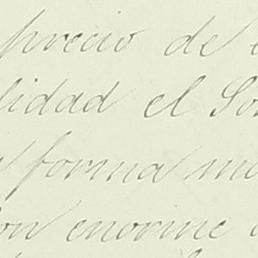 precio de
lidad el
forma
enorme